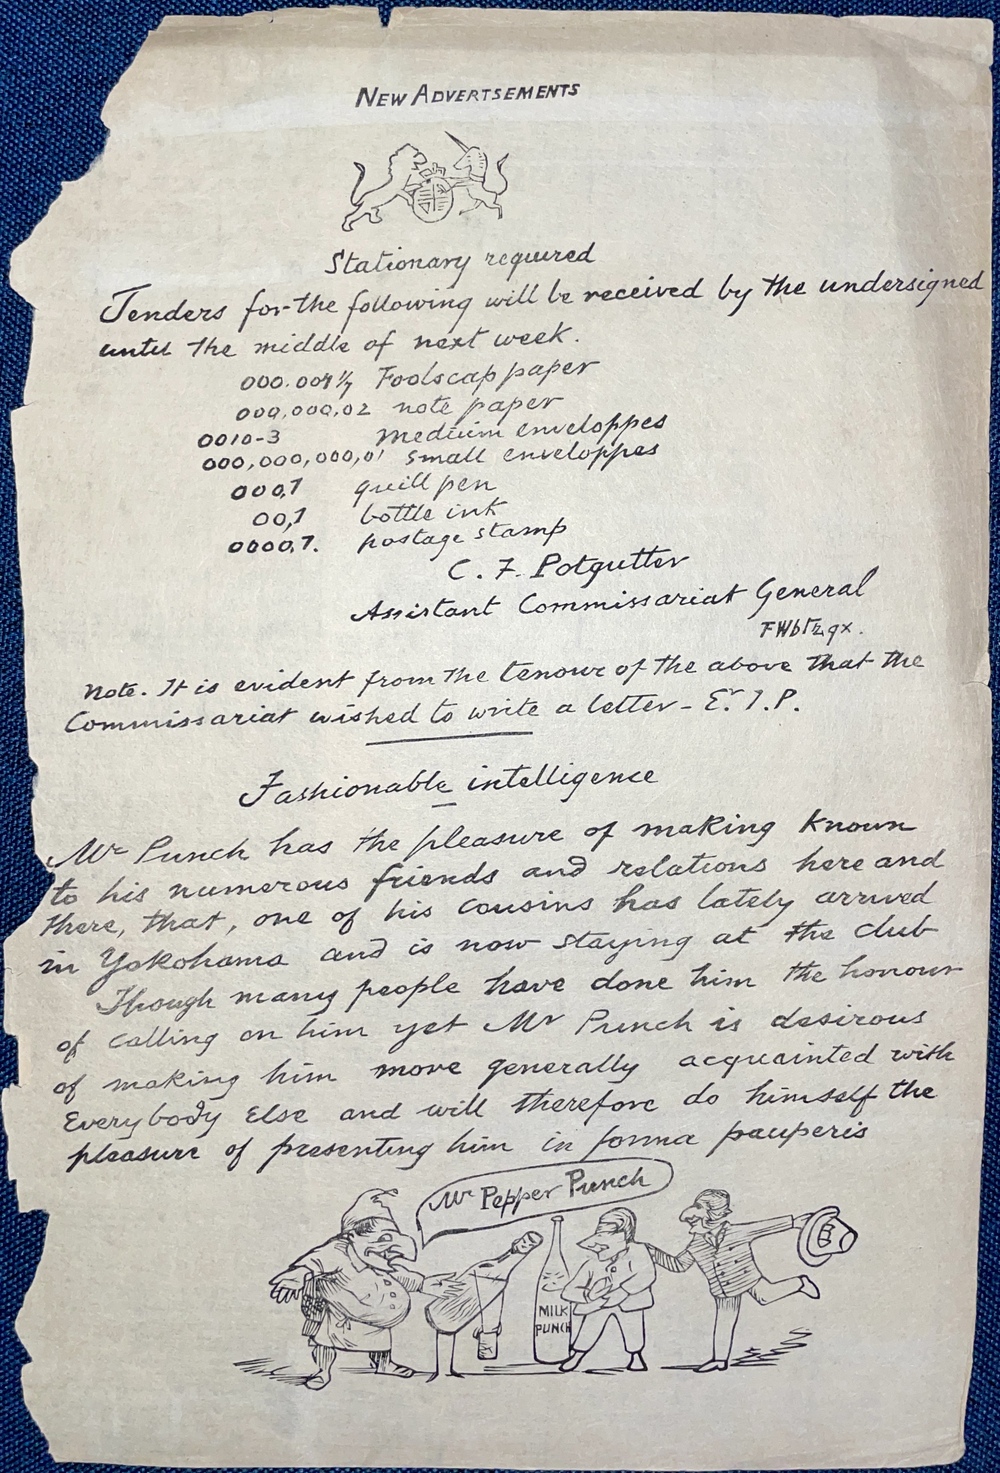 NEW ADVERTSEMENTS
Stationary required
Tenders for the following will be received by the undersigned
until the middle of next week.
Foolscap paper
000,000,02 note paper
0010-3 medium enveloppes
000,000,000,01 small enveloppes
000,1 quill pen
00,1 bottle ink
0000,1. postage stamp
C. F. Potgutter
Assistant Commissariat General
Note. It is evident from the tenour of the above that the
Commissariat wished to write a letter - Er. J.P.
Fashionable intelligence
Mr Punch has the pleasure of making known
to his numerous friends and relations here and
there, that, one of his cousins has lately arrived
in Yokohama and is now staying at the club
Though many people have done him the honour
of calling on him yet Mr Punch is desirous
of making him more generally acquainted with
Everybody Else and will therefore do himself the
pleasure of presenting him in forma pauperis
Mr Pepper Punch
MILK
PUNCH